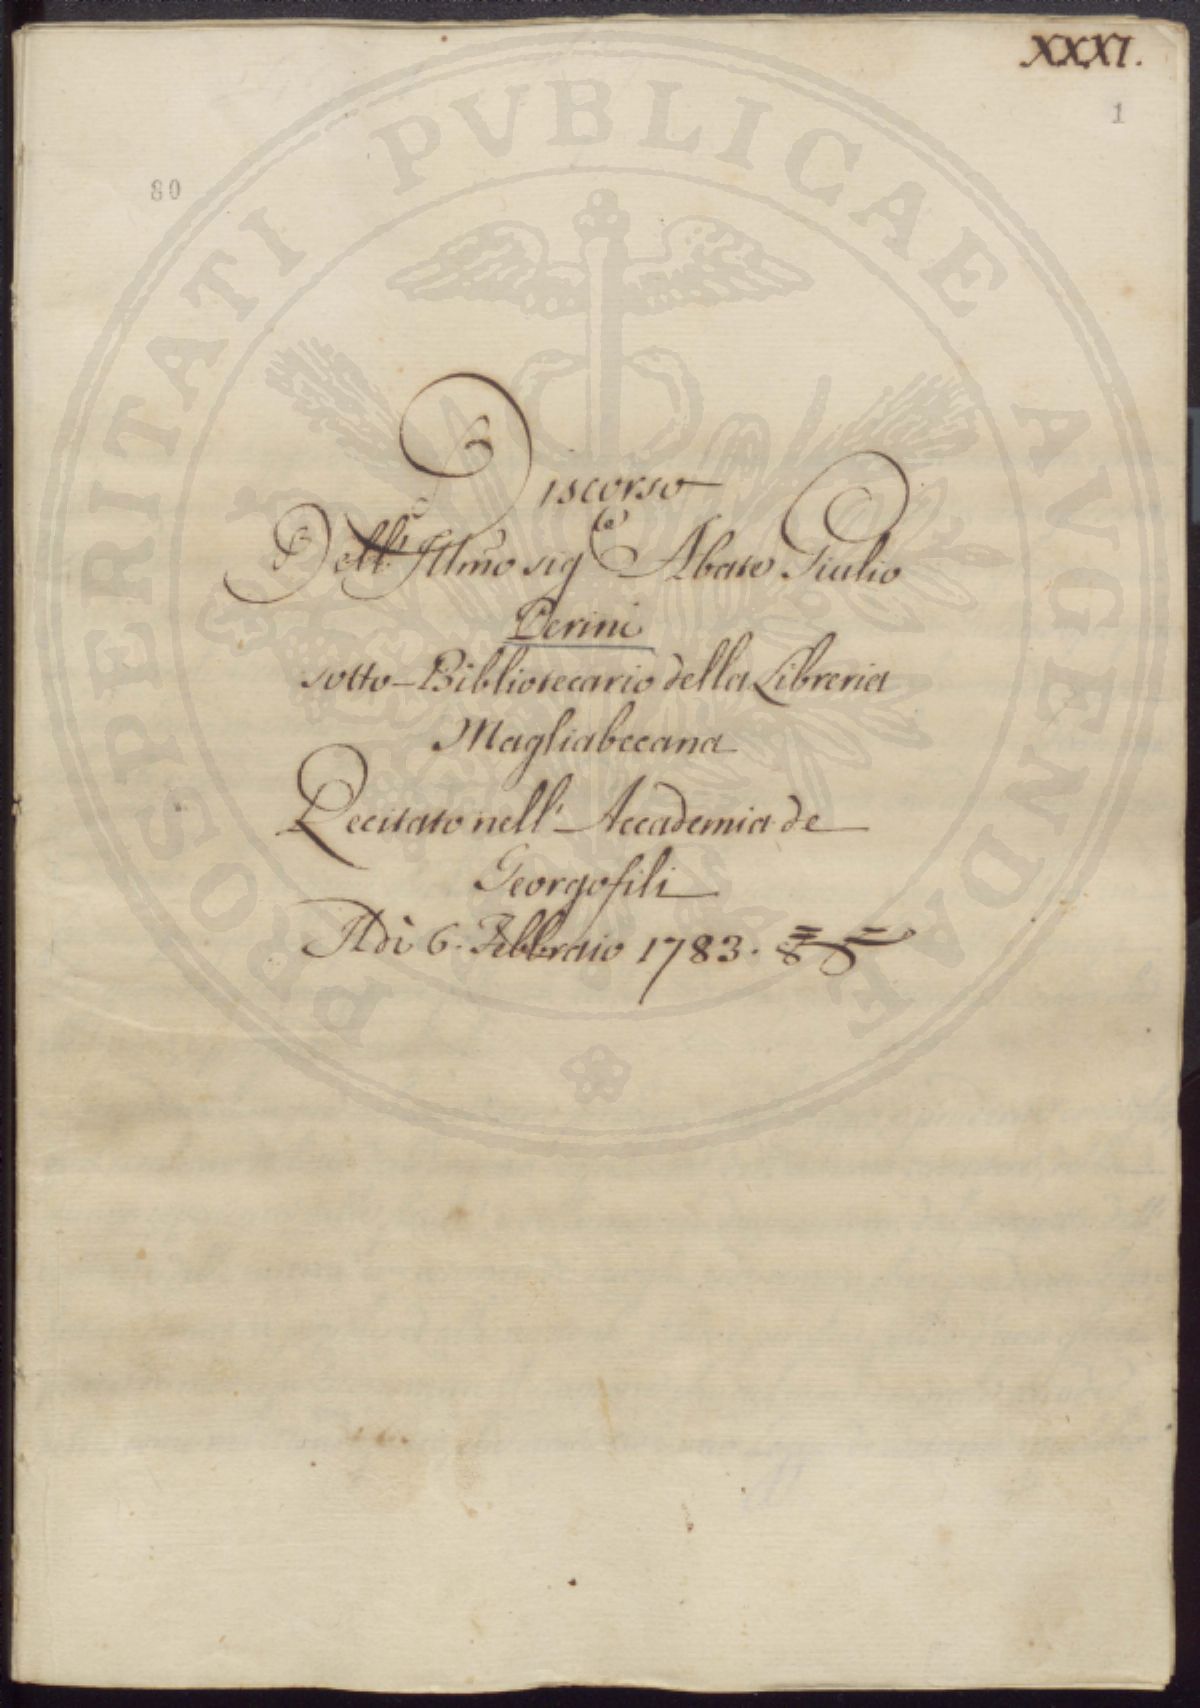 XXXI.
1
80
PROSPERITATI PVBLICAE AVGENDAE
Discorso
Dell' Illmo sig.e Abate Giulio
Perini
sotto-Bibliotecario della Libreria
Magliabecana
Recitato nell' Accademia de
Georgofili
Adì 6. Febbraio 1783.